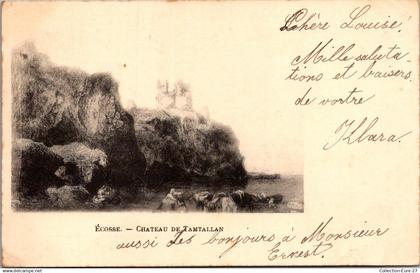 Chère Louise,
Mille saluta-
tions et baisers
de vortre
Klara.
ÉCOSSE. — CHATEAU DE TAMTALLAN
aussi des bonjours à Monsieur
Ernest.
Collection Eure-27